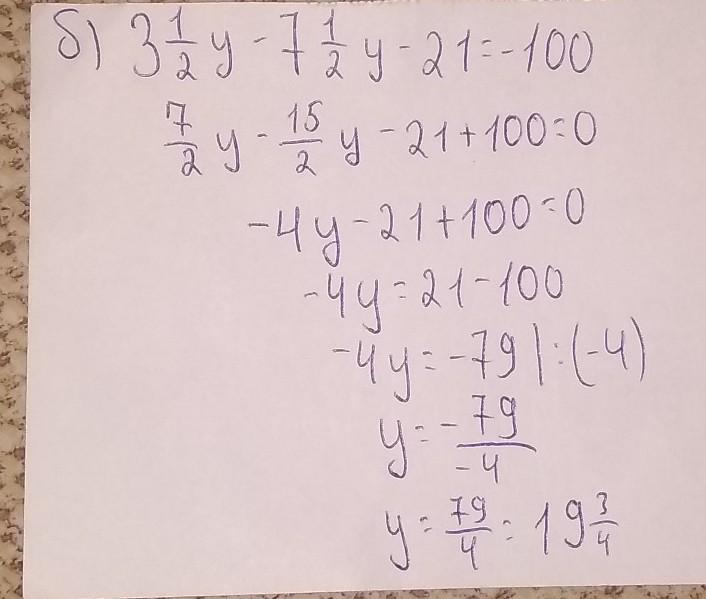 б) 3 1/2 y - 7 1/2 y - 21 = -100
7/2 y - 15/2 y - 21 + 100 = 0
-4y - 21 + 100 = 0
-4y = 21 - 100
-4y = -79 | : (-4)
y = - 79/-4
y = 79/4 = 19 3/4